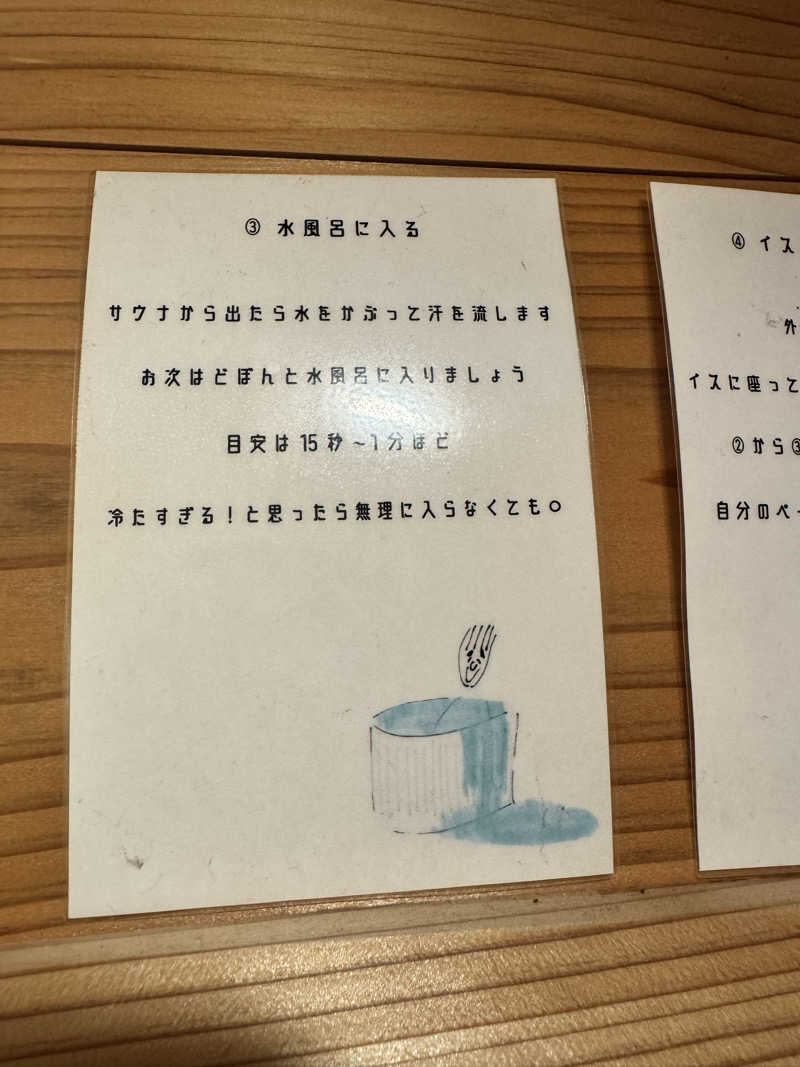 ③ 水風呂に入る
サウナから出たら水をかぶって汗を流します
お次はどぼんと水風呂に入りましょう
目安は15秒～1分ほど
冷たすぎる！と思ったら無理に入らなくても○
④ イス
外
イスに座って
②から③
自分のペー